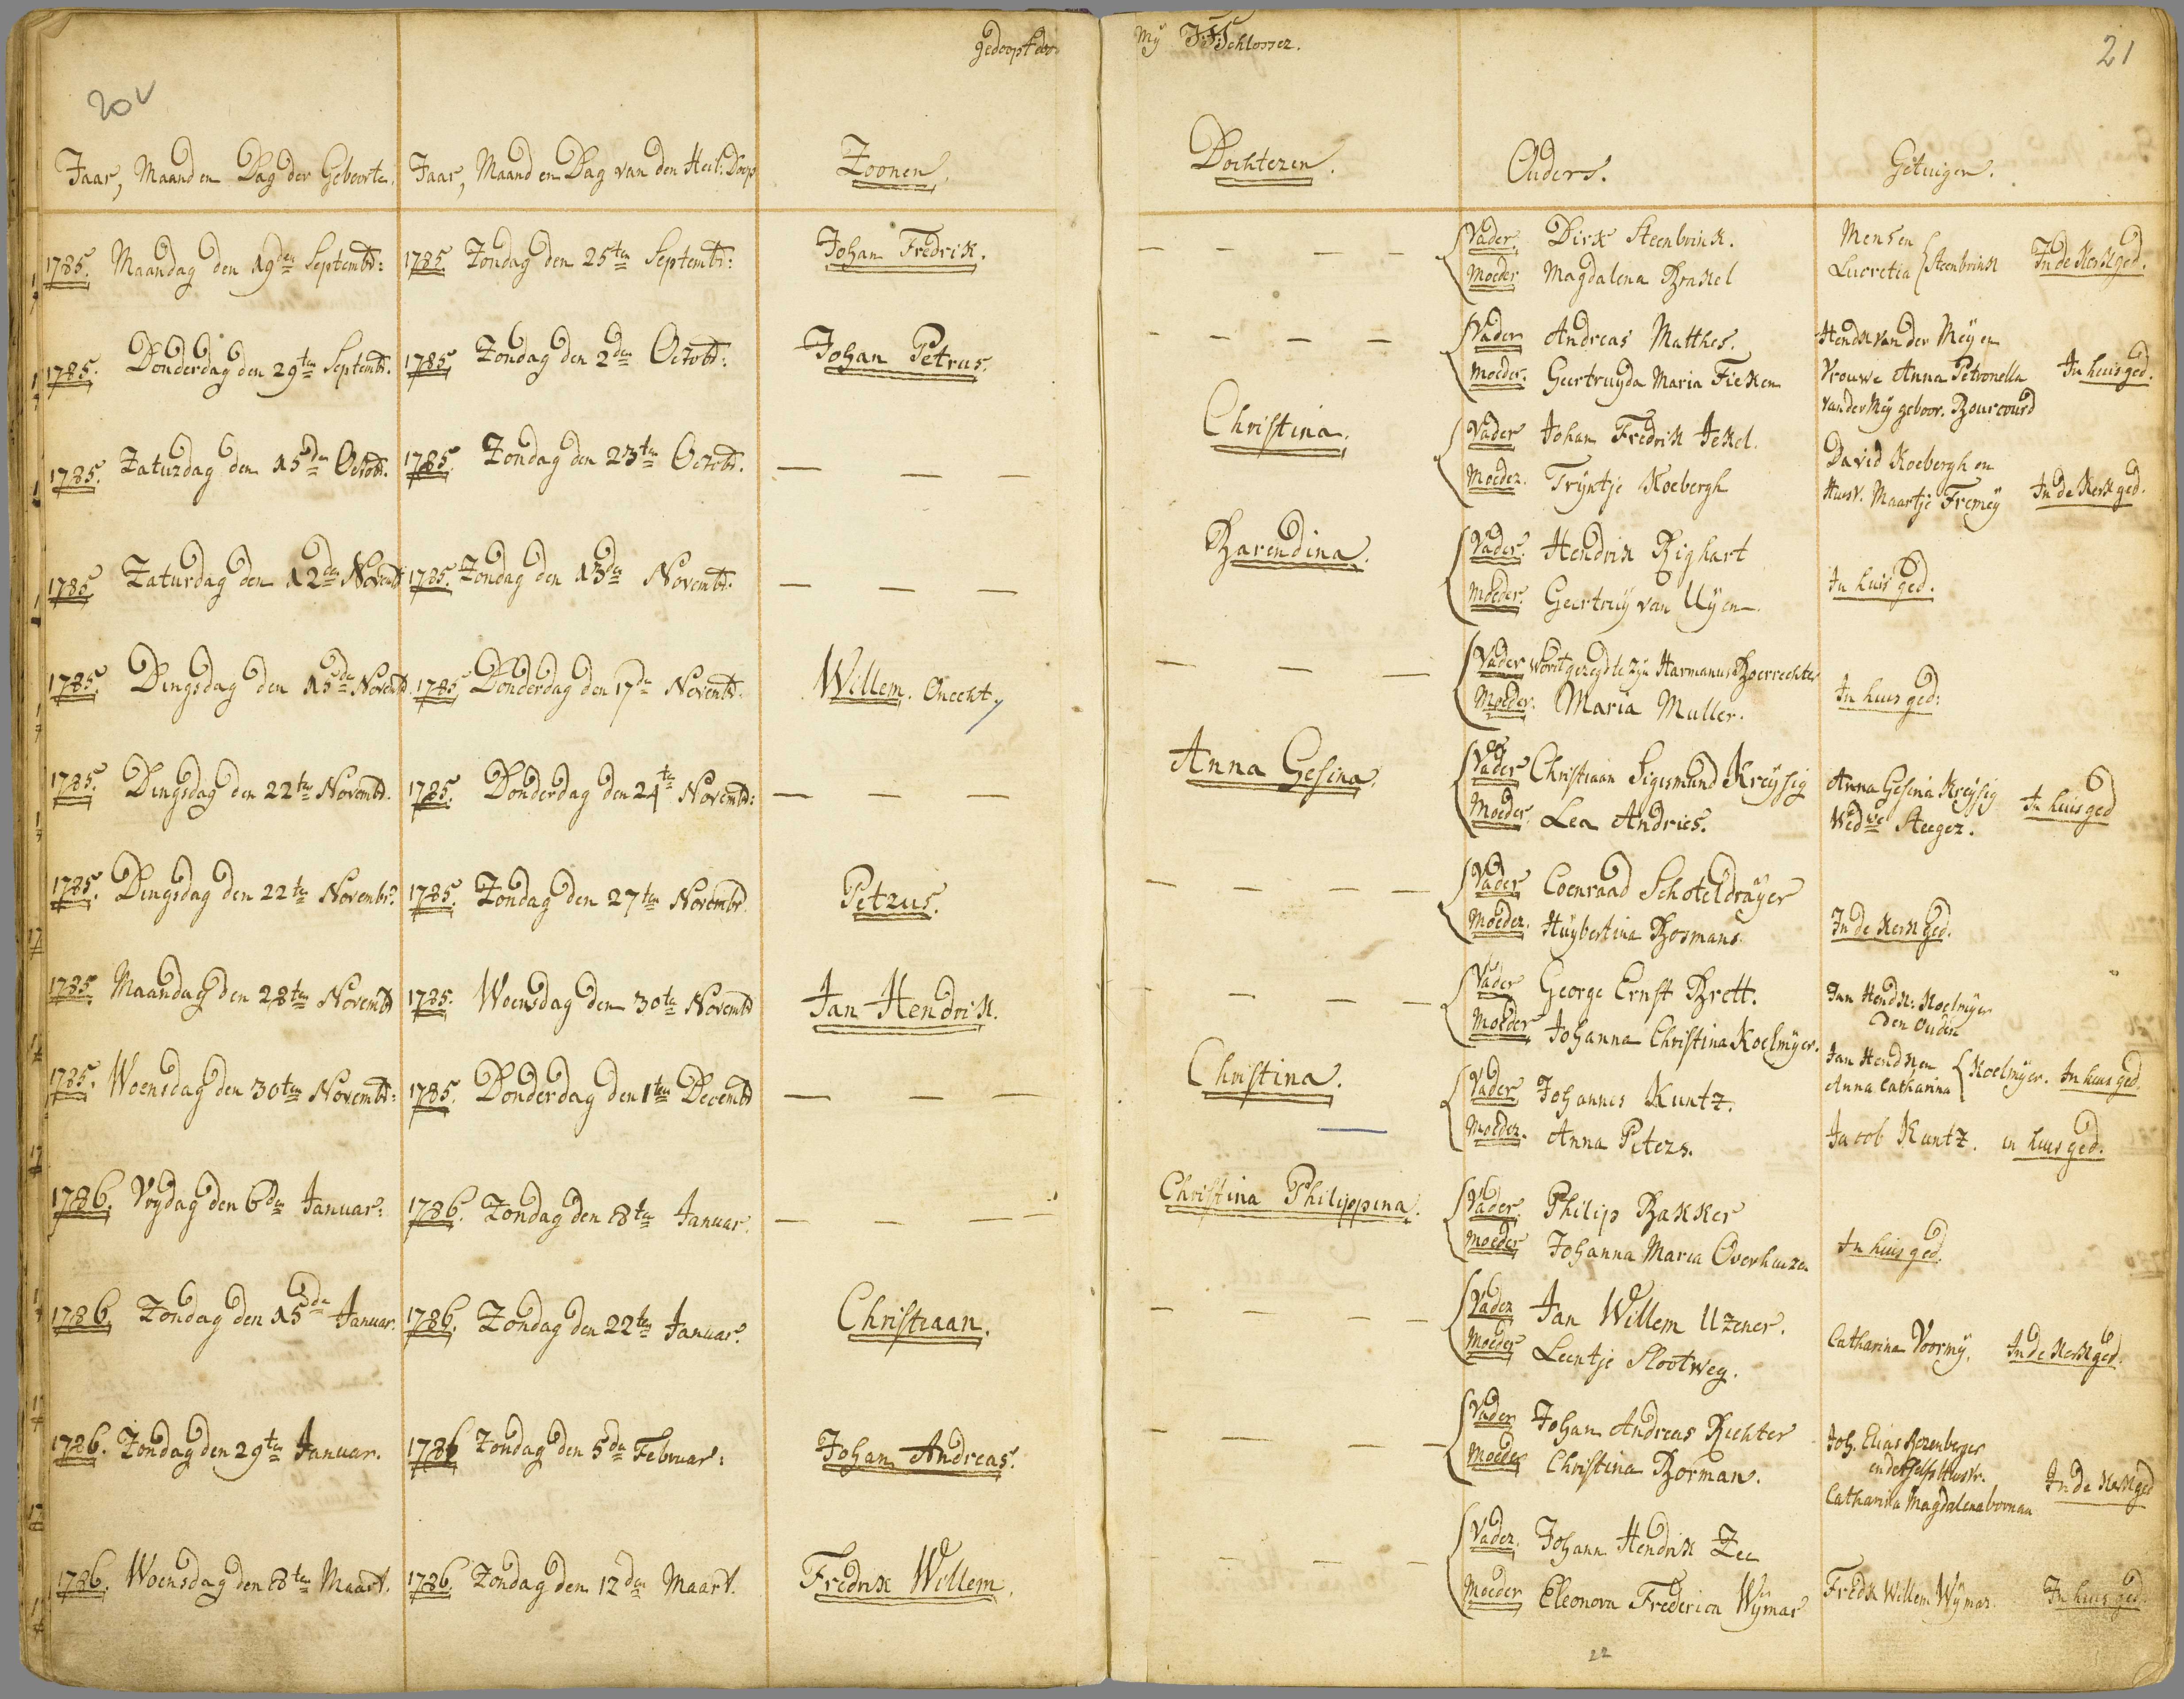 20v
gedoopt door
Jaar, Maand en Dag der Geboorte. Jaar, Maand en Dag van den Heil: Doop Zoonen.
1785. Maandag den 19den Septembr: 1785. Zondag den 25ten Septembr: Johan Fredrik.
1785. Donderdag den 29ten Septembr. 1785. Zondag den 2den Octobr: Johan Petrus.
1785. Zaturdag den 15den Octobr. 1785. Zondag den 23ten Octobr. — — —
1785 Zaturdag den 12den Novembr 1785. Zondag den 13den Novembr. — — —
1785. Dingsdag den 15den Novembr. 1785 Donderdag den 17den Novembr. Willem. Onecht.
1785. Dingsdag den 22ten Novembr. 1785. Donderdag den 24ten Novembr: — — —
1785. Dingsdag den 22ten Novembr. 1785. Zondag den 27ten Novembr Petrus.
1785. Maandag den 28ten Novembr 1785. Woensdag den 30ten Novembr Jan Hendrik.
1785. Woensdag den 30ten Novembr: 1785. Donderdag den 1ten Decembr — — —
1786. Vrydag den 6den Januar: 1786. Zondag den 8ten Januar. — — —
1786. Zondag den 15den Januar. 1786. Zondag den 22ten Januar. Christiaan.
1786. Zondag den 29ten Januar. 1786 Zondag den 5den Februar: Johan Andreas.
1786. Woensdag den 8ten Maart. 1786. Zondag den 12den Maart. Fredrik Willem.
My Schlosser.
21
Dochteren. Ouders. Getuigen.
— — — — Vader. Dirk Steenbrink. Mensen
Moeder Magdalena Brakel Lucretia Steenbrink In de Kerk ged.
— — — — Vader Andreas Matthes. Hendk van der Meÿ en
Moeder. Geertruyda Maria Fieken Vrouwe Anna Petronella In huis ged.
van der Meÿ geboor. Bourcourd
Christina. Vader Johan Fredrik Jekel. David Koebergh en
Moeder. Trÿntje Koebergh Huisv. Maartje Fremeÿ In de Kerk ged.
Barendina. Vader. Hendrik Righart
Moeder. Geertruÿ van Uÿen. In huis ged.
— — — Vader wort gezegd te zÿn Harmanus Boerrechter
Moeder. Maria Muller. In huis ged:
Anna Gesina. Vader Christiaan Sigismund Kreÿsig Anna Gesina Kreÿsig
Moeder. Lea Andries. Wedwe Steeger. In huis ged
— — — — Vader Coenraad Schoteldraÿer
Moeder. Huÿbertina Bosmans. In de Kerk ged.
— — — — Vader George Ernst Brett. Jan Hendk: Koelmÿer
den Ouden
Moeder Johanna Christina Koelmÿer. Jan Hendk en
Anna Catharina Koelmÿer. In huis ged.
Christina. Vader Johannes Kuntz.
Moeder. Anna Peters. Jacob Kuntz. in huis ged.
Christina Philippina. Vader. Philip Bakker
Moeder Johanna Maria Overhuizen In huis ged.
— — — — Vader Jan Willem Uzener.
Moeder Leentje Slootweg. Catharina Voormÿ. In de Kerk ged.
— — — — Vader Johan Andreas Richter Joh. Elias Rozenberger
Moeder Christina Borman. en deszelfs Huisvr.
Catharina Magdalena borman In de Kerk ged
— — — — Vader. Johann Hendrik Zee
Moeder Eleonora Frederica Wÿmar Fredk Willem Wÿmar. In huis ged.
22